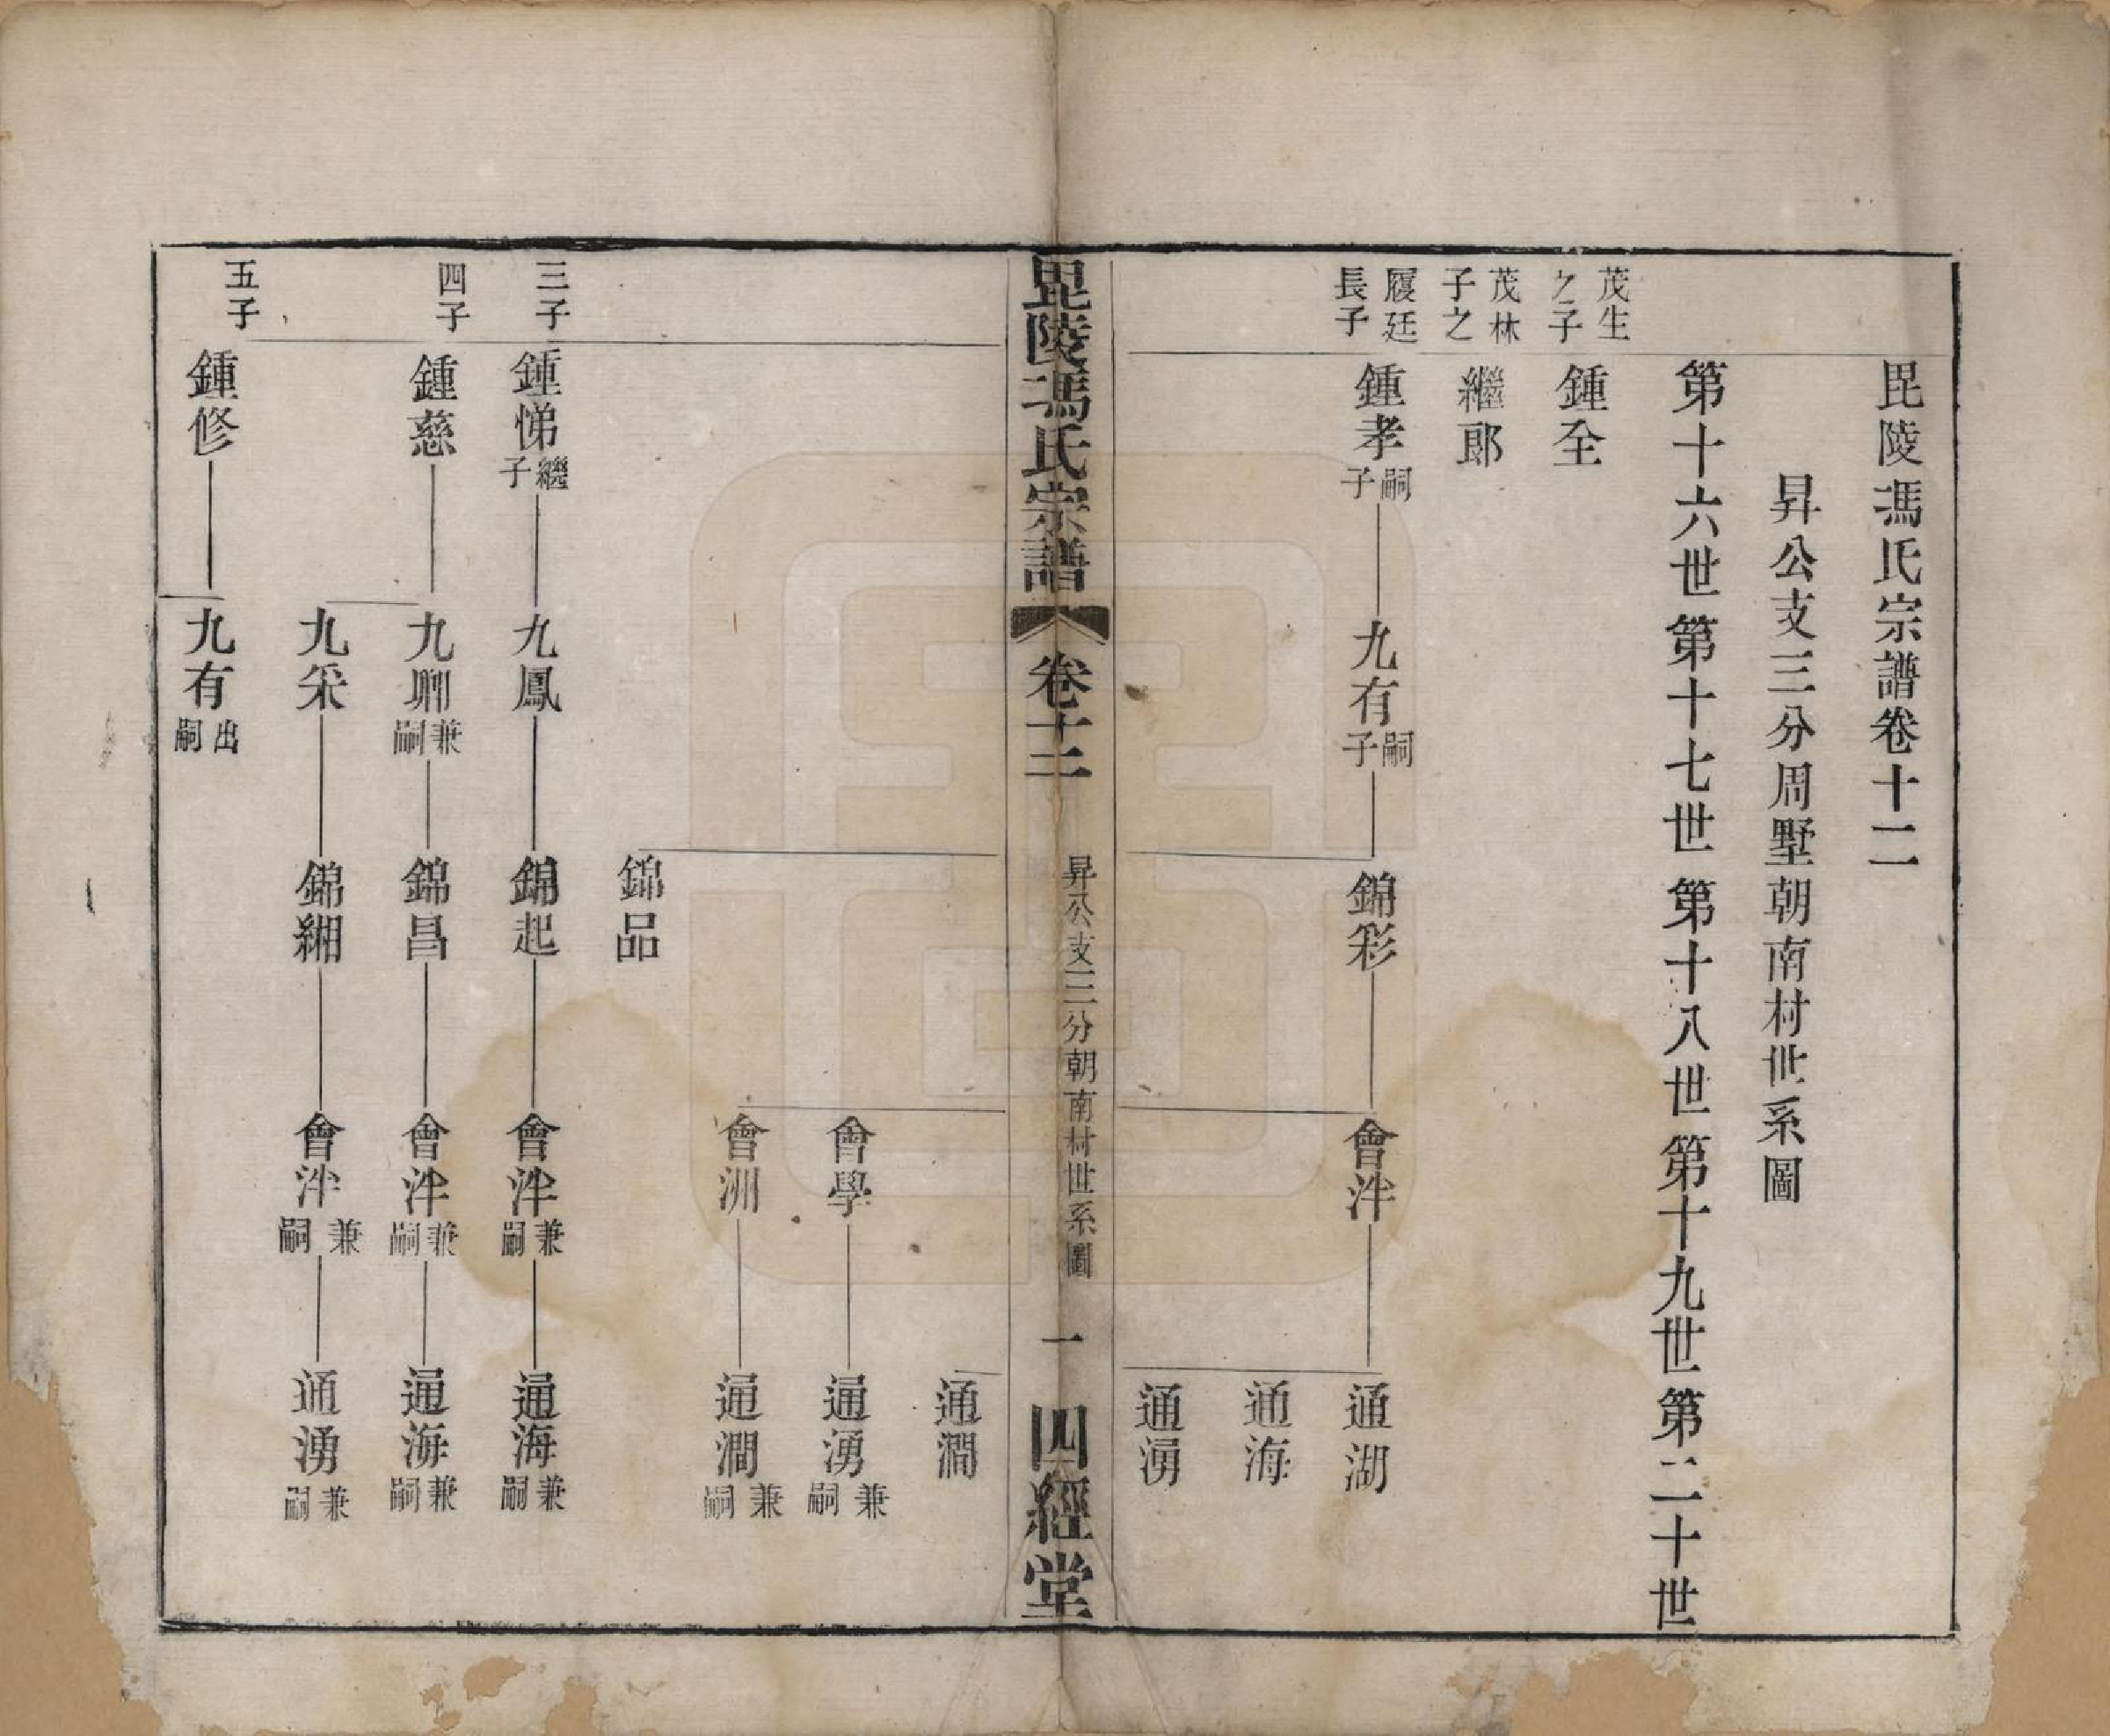 毘陵馮氏宗譜卷十二
昇公支三分周墅朝南村世系圖
第十六世 第十七世 第十八世 第十九世 第二十世
茂生之子 鍾全
茂林之子 繼郎
履廷長子 鍾孝 嗣子 九有 嗣子 錦彩 會泮 通湖
通海
通湧
毘陵馮氏宗譜 卷十二 昇公支三分朝南村世系圖 一 四經堂
通澗
會學 通湧 兼嗣
會洲 通澗 兼嗣
錦品
三子 鍾悌 繼子 九鳳 錦起 會泮 兼嗣 通海 兼嗣
四子 鍾慈 九聊 兼嗣 錦昌 會泮 兼嗣 通海 兼嗣
九采 錦緗 會泮 兼嗣 通湧 兼嗣
五子 鍾修 九有 出嗣